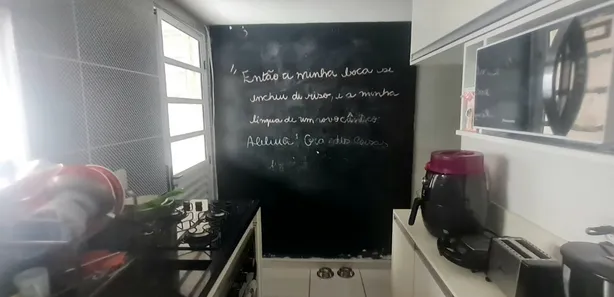 "Então a minha boca se
encheu de riso, e a minha
língua de um novo cântico
Aleluia! Ora